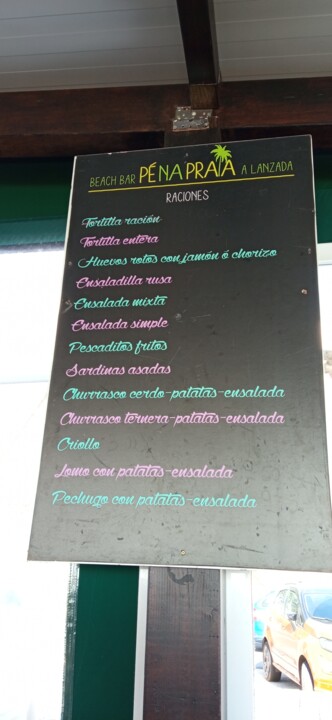 BEACH BAR PÉ NA PRAIA A LANZADA
RACIONES
Tortilla ración
Tortilla entera
Huevos rotos con jamón ó chorizo
Ensaladilla rusa
Ensalada mixta
Ensalada simple
Pescaditos fritos
Sardinas asadas
Churrasco cerdo-patatas-ensalada
Churrasco ternera-patatas-ensalada
Criollo
Lomo con patatas-ensalada
Pechugo con patatas-ensalada